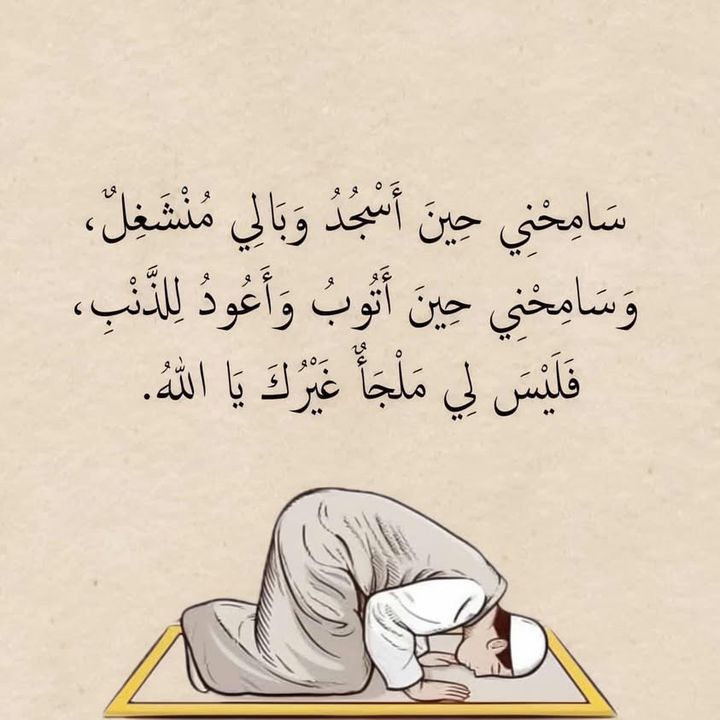 سَامِحْنِي حِينَ أَسْجُدُ وَبَالِي مُنْشَغِلٌ،
وَسَامِحْنِي حِينَ أَتُوبُ وَأَعُودُ لِلذَّنْبِ،
فَلَيْسَ لِي مَلْجَأٌ غَيْرُكَ يَا اللهُ.